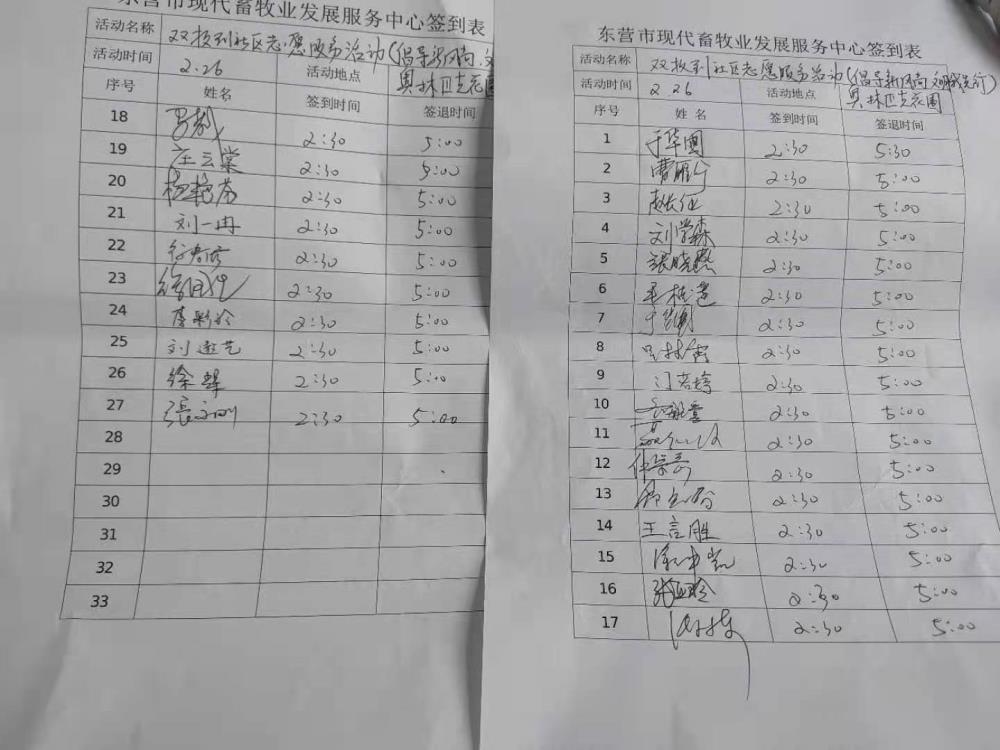 东营市现代畜牧业发展服务中心签到表
活动名称 双报到社区志愿服务活动(倡导新风尚,文
活动时间 2.26 活动地点 奥林匹克花园
序号 姓名 签到时间 签退时间
18 2:30 5:00
19 庄云棠 2:30 5:00
20 杨艳芬 2:30 5:00
21 刘一冉 2:30 5:00
22 2:30 5:00
23 2:30 5:00
24 2:30 5:00
25 刘逊艺 2:30 5:00
26 徐辉 2:30 5:00
27 2:30 5:00
28
29
30
31
32
33
东营市现代畜牧业发展服务中心签到表
活动名称 双报到社区志愿服务活动(倡导新风尚 文明我先行)
活动时间 2.26 活动地点 奥林匹克花园
序号 姓名 签到时间 签退时间
1 于华国 2:30 5:30
2 曹雁行 2:30 5:00
3 2:30 5:00
4 刘学森 2:30 5:00
5 张晓燕 2:30 5:00
6 2:30 5:00
7 2:30 5:00
8 2:30 5:00
9 2:30 5:00
10 2:30 5:00
11 2:30 5:00
12 2:30 5:00
13 2:30 5:00
14 王言胜 2:30 5:00
15 2:30 5:00
16 2:30 5:00
17 2:30 5:00